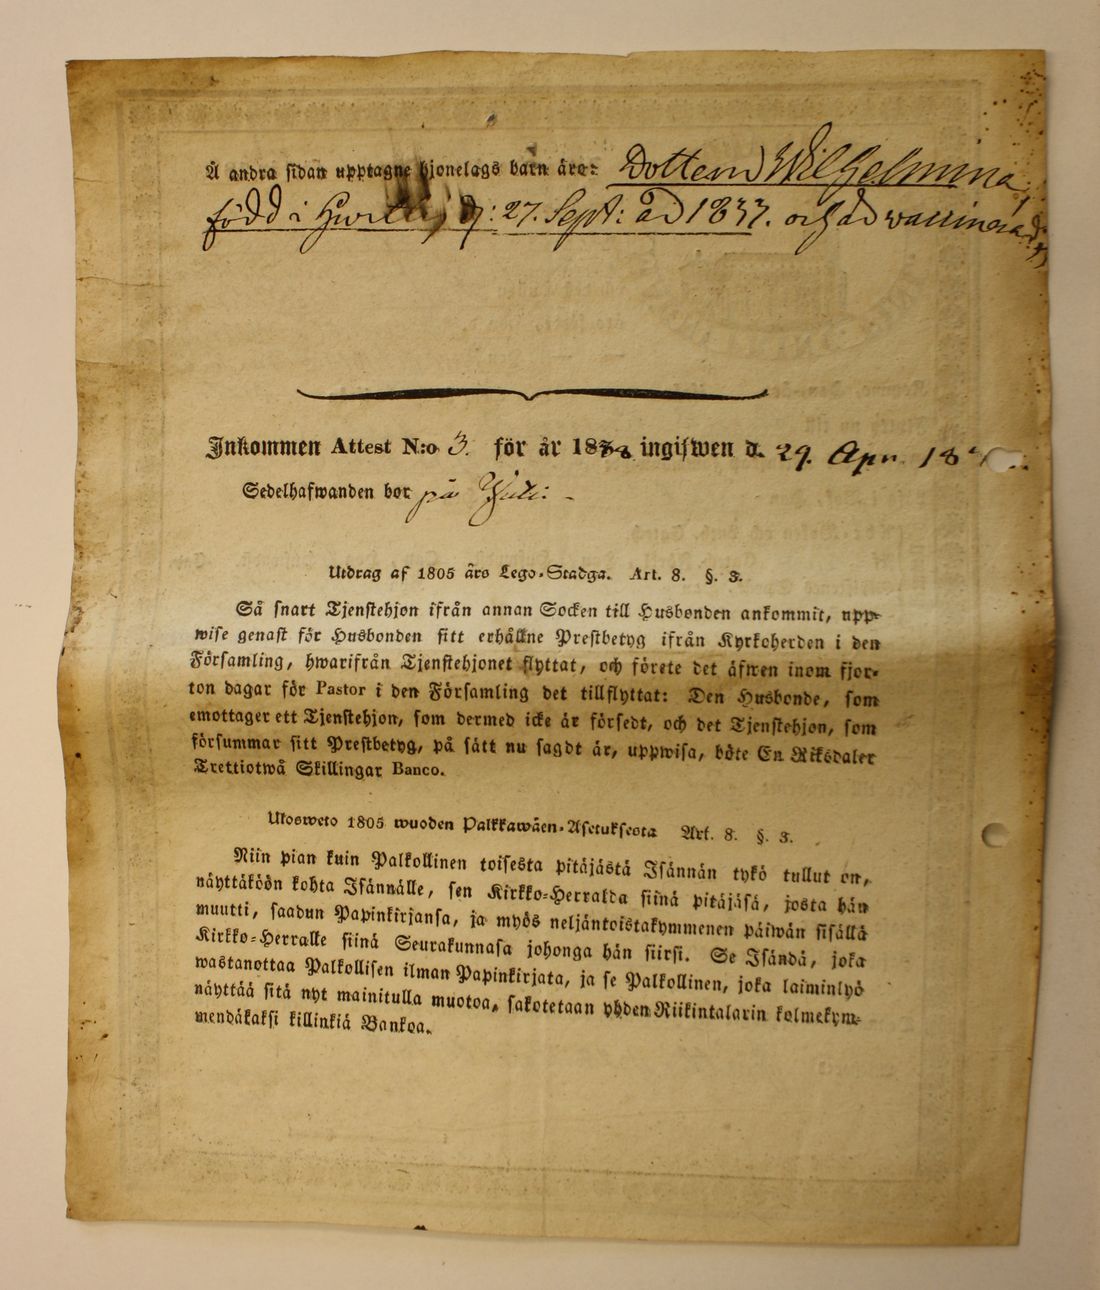 Å andra sidan upptagne hjonelags barn äro: Dottern Wilhelmina
född i 27. Sept: år 1837. och är
Inkommen Attest N:o 3. för år 18 ingifwen d. 29. Apr. 18
Sedelhafwanden bor på
Utdrag af 1805 års Lego-Stadga. Art. 8. §. 3.
Så snart Tjenstehjon ifrån annan Socken till Husbonden ankommit, upp-
wise genast för Husbonden sitt erhållne Prestbetyg ifrån Kyrkoherden i den
Församling, hwarifrån Tjenstehjonet flyttat, och förete det äfwen inom fjor-
ton dagar för Pastor i den Församling det tillflyttat: Den Husbonde, som
emottager ett Tjenstehjon, som dermed icke är försedt, och det Tjenstehjon, som
försummar sitt Prestbetyg, på sätt nu sagdt är, uppwisa, böte En Riksdaler
Trettiotwå Skillingar Banco.
Ulosweto 1805 wuoden Palkkawäen-Asetuksesta Art. 8. §. 3.
Niin pian kuin Palkollinen toisesta pitäjästä Isännän tykö tullut on,
näyttäköön kohta Isännälle, sen Kirkko-Herralda siinä pitäjäsä, josta hän
muutti, saadun Papinkirjansa, ja myös neljäntoistakymmenen päiwän sisällä
Kirkko-Herralle siinä Seurakunnasa johonga hän siirsi. Se Isändä, joka
wastanottaa Palkollisen ilman Papinkirjata, ja se Palkollinen, joka laiminlyö
näyttää sitä nyt mainitulla muotoa, sakotetaan yhden Riikintalarin kolmekym-
mendäkaksi killinkiä Bankoa.